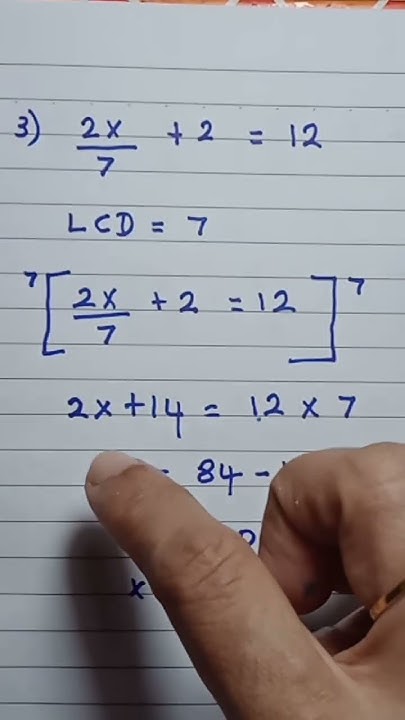 3) 2x/7 + 2 = 12
LCD = 7
7[2x/7 + 2 = 12]7
2x + 14 = 12 x 7
= 84 -
x